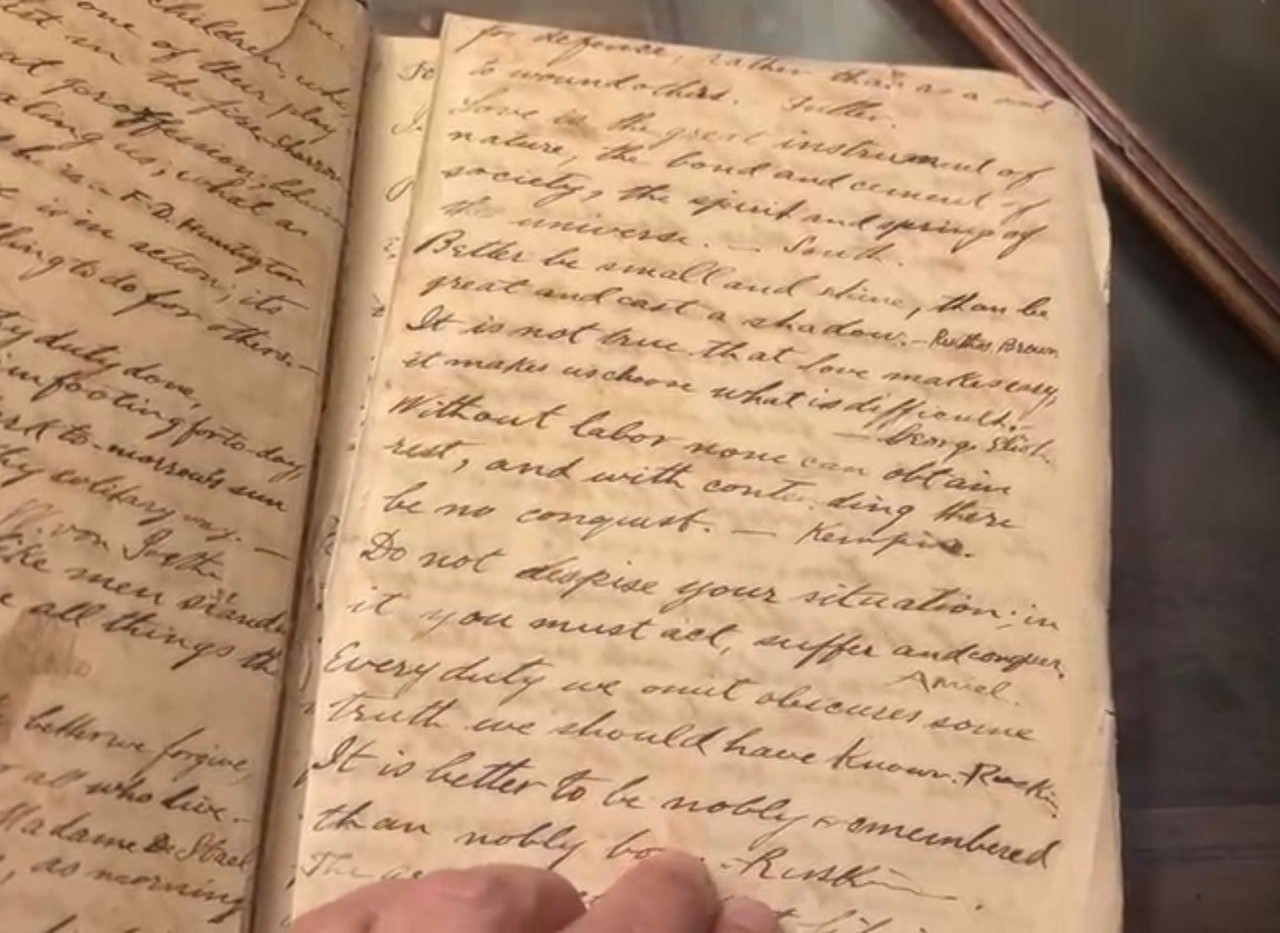 children, who
one of their play
in the fire.
at profession,
us, what a
F. D. Huntington
is in action; its
thing to do for others.—
duty done,
footing for to-day,
to-morrow's sun
thy solitary way. —
von
like men
all things th
better we forgive,
all who live.—
Madame De Stael
, as morning
for defense, rather than as a
to wound others. Fuller.
Love is the great instrument of
nature, the bond and cement of
society, the spirit and spring of
the universe. — South.
Better be small and shine, than be
great and cast a shadow.— Brown
It is not true that love makes easy,
it makes us choose what is difficult.—
— George Eliot.
Without labor none can obtain
rest, and with contending there
be no conquest. — Kempis.
Do not despise your situation; in
it you must act, suffer and conquer.
Amiel.
Every duty we omit obscures some
truth we should have known.-Ruskin.
It is better to be nobly remembered
than nobly -Ruskin
The